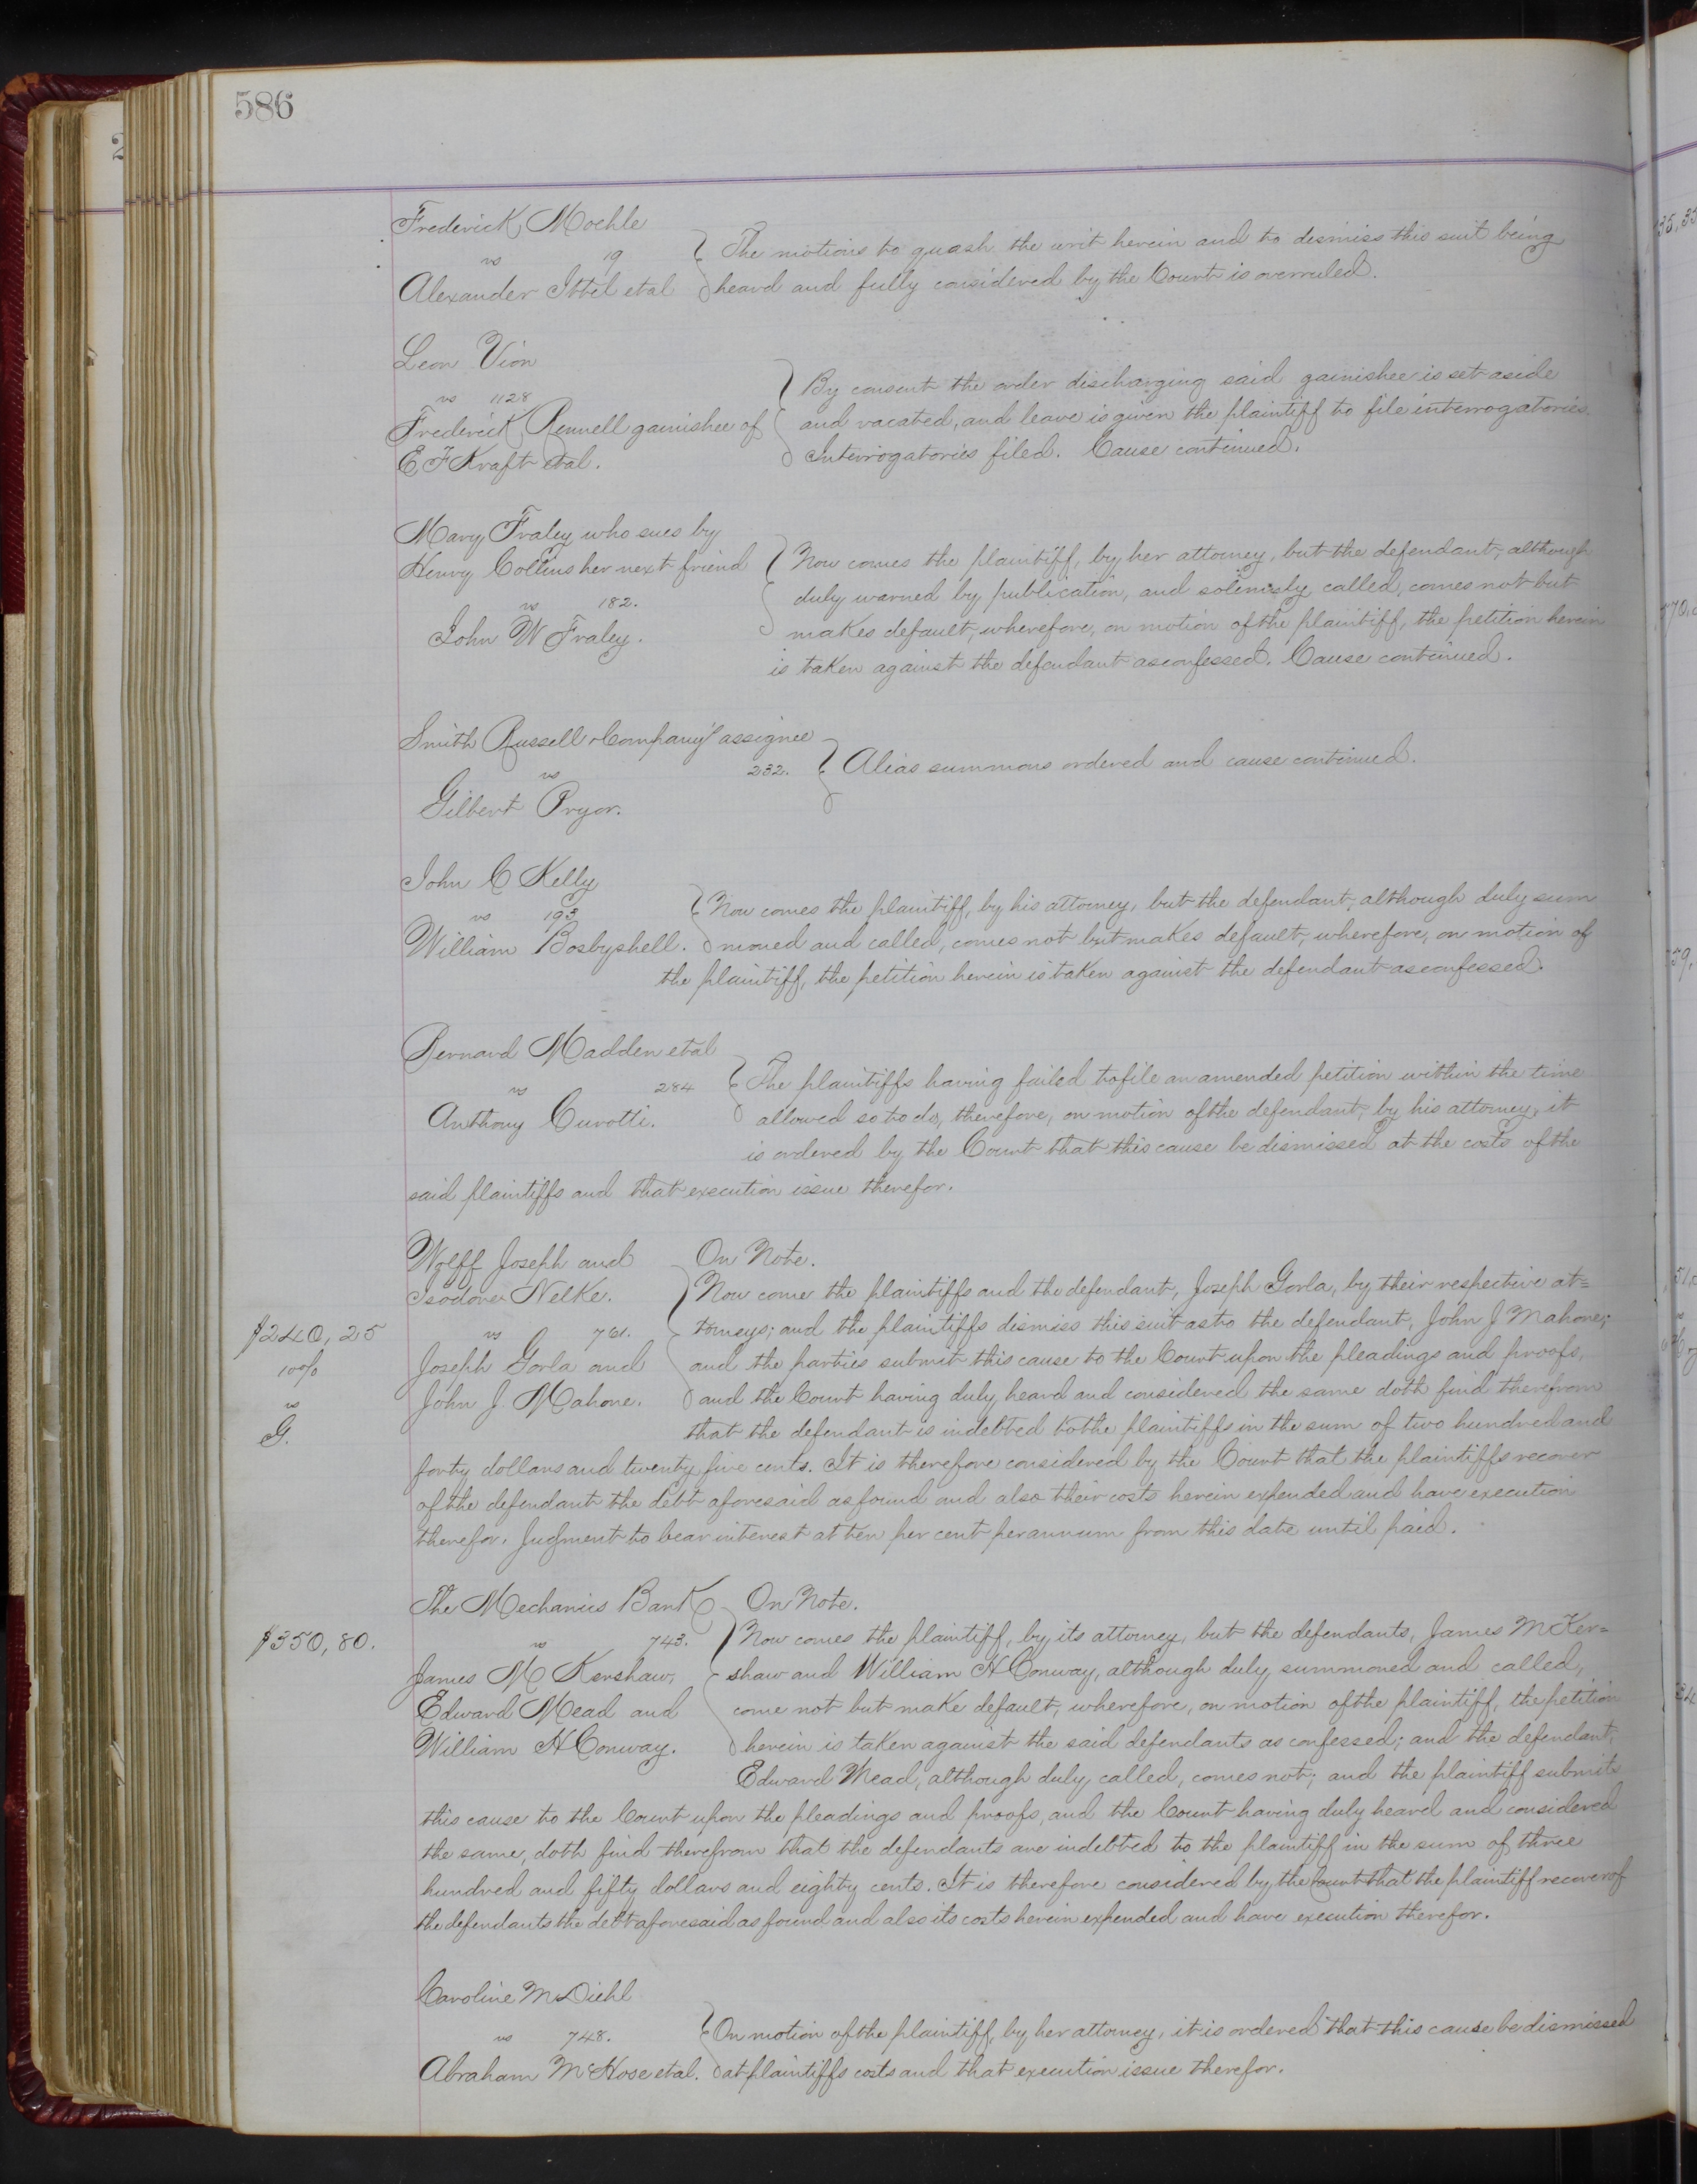 586
Frederick Moehle
vs 19
Alexander Ittel etal
The motions to quash the writ herein and to dismiss this suit being
heard and fully considered by the Court is overruled.
Leon Vion
vs 1128
Frederick Rennell garnishee of
E F Kraft etal.
By consent the order discharging said garnishee is set aside
and vacated, and leave is given the plaintiff to file interrogatories.
Interrogatories filed. Cause continued.
Mary Fraley who sues by
Henry Collins her next friend
vs 182.
John W Fraley.
Now comes the plaintiff, by her attorney, but the defendant, although
duly warned by publication, and solemnly called, comes not but
makes default, wherefore, on motion of the plaintiff, the petition herein
is taken against the defendant as confessed. Cause continued.
Smith Russell & Company's assignee
vs 232.
Gilbert Pryor.
Alias summons ordered and cause continued.
John C Kelly
vs 193
William Bosbyshell.
Now comes the plaintiff, by his attorney, but the defendant, although duly sum
moned and called, comes not but makes default, wherefore, on motion of
the plaintiff, the petition herein is taken against the defendant as confessed.
Bernard Madden etal
vs 284
Anthony Curotti.
The plaintiffs having failed to file an amended petition within the time
allowed so to do, therefore, on motion of the defendant, by his attorney, it
is ordered by the Court that this cause be dismissed at the costs of the
said plaintiffs and that execution issue therefor.
Wolff Joseph and
Isodore Nelke.
vs 761.
Joseph Gorla and
John J. Mahone.
$240,25
10%
vs
G.
On Note.
Now come the plaintiffs and the defendant, Joseph Gorla, by their respective at=
torneys; and the plaintiffs dismiss this suit as to the defendant, John J Mahone;
and the parties submit this cause to the Court upon the pleadings and proofs,
and the Court having duly heard and considered the same doth find therefrom
that the defendant is indebted to the plaintiffs in the sum of two hundred and
forty dollars and twenty five cents. It is therefore considered by the Court that the plaintiffs recover
of the defendant the debt aforesaid as found and also their costs herein expended and have execution
therefor. Judgment to bear interest at ten per cent per annum from this date until paid.
The Mechanics Bank
vs 743.
James M Kershaw,
Edward Mead and
William H Conway.
$350,80.
On Note.
Now comes the plaintiff, by its attorney, but the defendants, James M Ker=
shaw and William H Conway, although duly summoned and called,
come not but make default, wherefore, on motion of the plaintiff, the petition
herein is taken against the said defendants as confessed; and the defendant,
Edward Mead, although duly called, comes not; and the plaintiff submits
this cause to the Court upon the pleadings and proofs, and the Court having duly heard and considered
the same, doth find therefrom that the defendants are indebted to the plaintiff in the sum of three
hundred and fifty dollars and eighty cents. It is therefore considered by the Court that the plaintiff recover of
the defendants the debt aforesaid as found and also its costs herein expended and have execution therefor.
Caroline M Diehl
vs 748.
Abraham McHose etal.
On motion of the plaintiff, by her attorney, it is ordered that this cause be dismissed
at plaintiffs costs and that execution issue therefor.